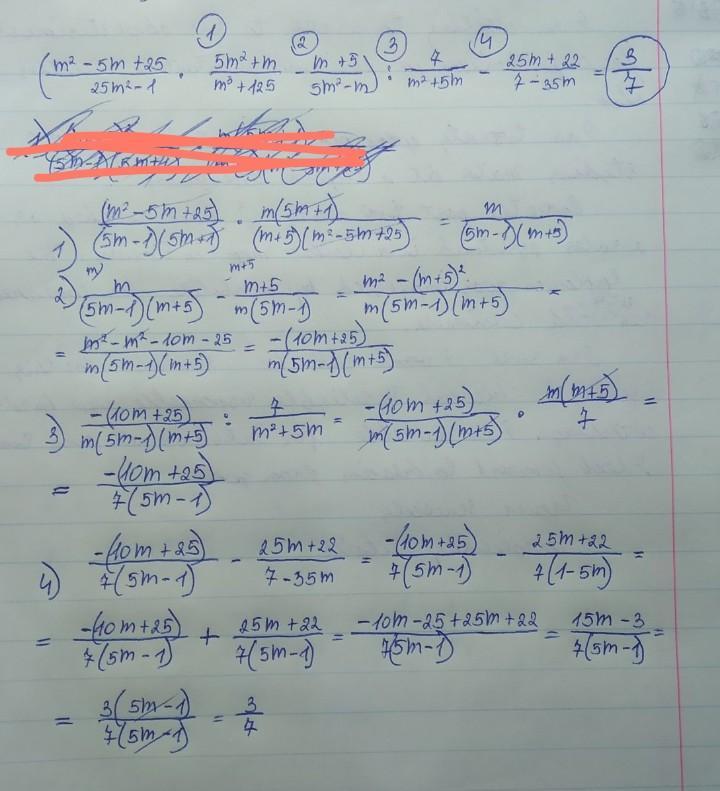 ① ② ③ ④
((m² - 5m + 25)/(25m² - 1) · (5m² + m)/(m³ + 125) - (m + 5)/(5m² - m)) : 7/(m² + 5m) - (25m + 22)/(7 - 35m) = 3/7
1) (m² - 5m + 25)/((5m - 1)(5m + 1)) · m(5m + 1)/((m + 5)(m² - 5m + 25)) = m/((5m - 1)(m + 5))
m) m+5
2) m/((5m - 1)(m + 5)) - (m + 5)/(m(5m - 1)) = (m² - (m + 5)²)/(m(5m - 1)(m + 5)) =
= (m² - m² - 10m - 25)/(m(5m - 1)(m + 5)) = -(10m + 25)/(m(5m - 1)(m + 5))
3) -(10m + 25)/(m(5m - 1)(m + 5)) : 7/(m² + 5m) = -(10m + 25)/(m(5m - 1)(m + 5)) · m(m + 5)/7 =
= -(10m + 25)/(7(5m - 1))
4) -(10m + 25)/(7(5m - 1)) - (25m + 22)/(7 - 35m) = -(10m + 25)/(7(5m - 1)) - (25m + 22)/(7(1 - 5m)) =
= -(10m + 25)/(7(5m - 1)) + (25m + 22)/(7(5m - 1)) = (-10m - 25 + 25m + 22)/(7(5m - 1)) = (15m - 3)/(7(5m - 1)) =
= 3(5m - 1)/(7(5m - 1)) = 3/7